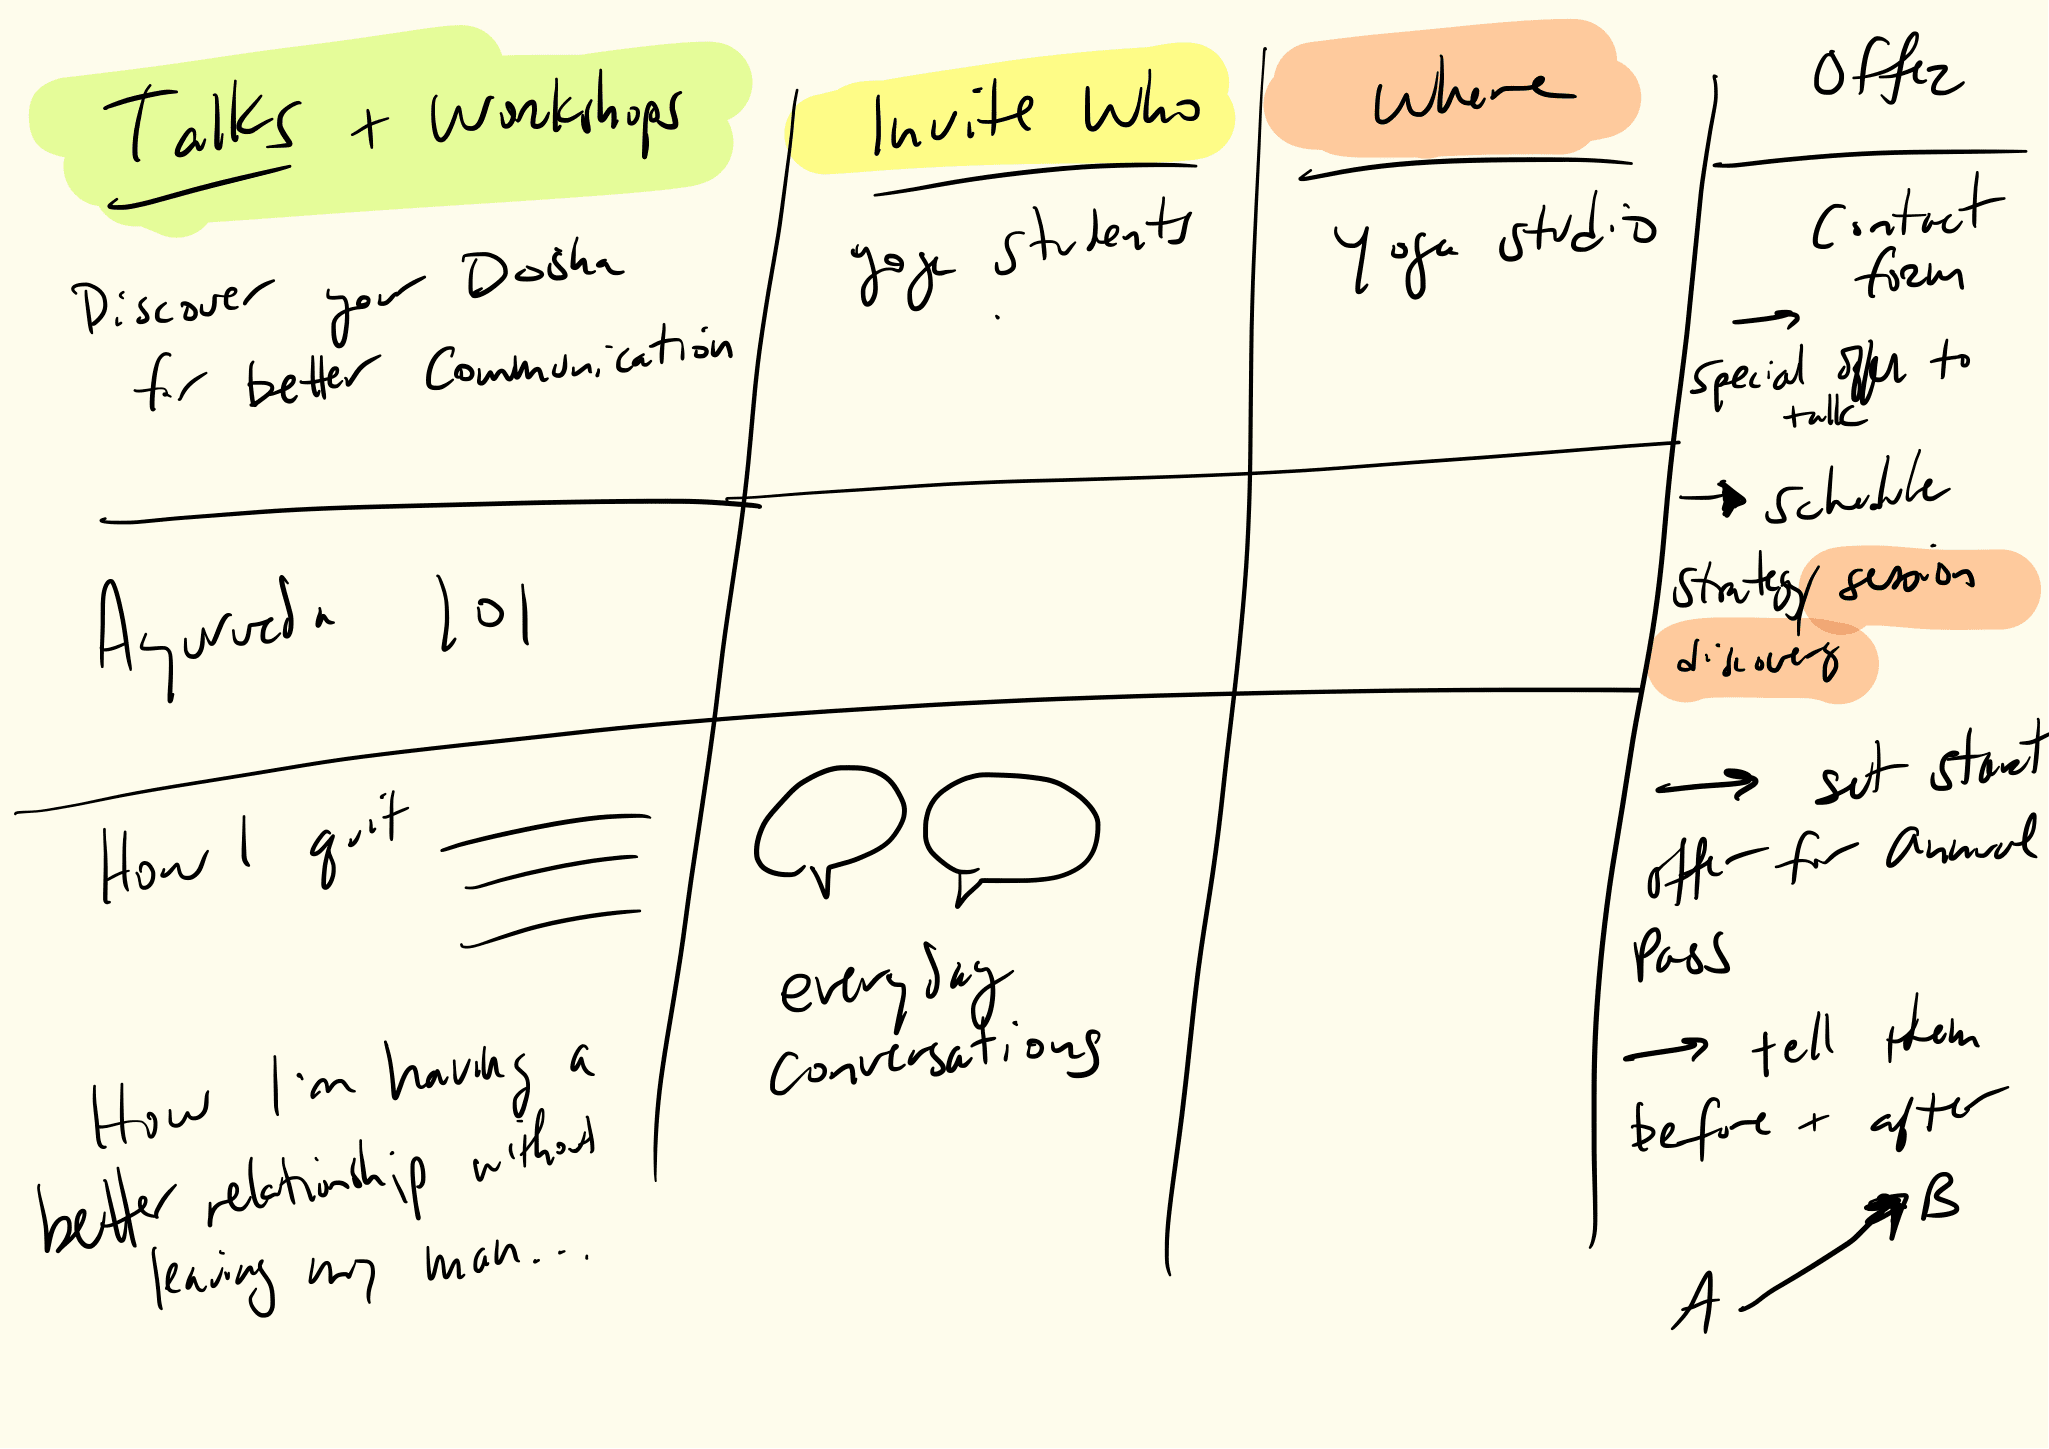 Talks + Workshops
Invite Who
Where
Offer
Discover your Dosha
for better Communication
yoga students
Yoga studio
Contact
form
→
special offer to
talk
→ schedule
strategy/session
discovery
Ayurveda 101
→ set start
offer for annual
Pass
→ tell them
before + after
A → B
How I quit
everyday
conversations
How I'm having a
better relationship without
leaving my man...